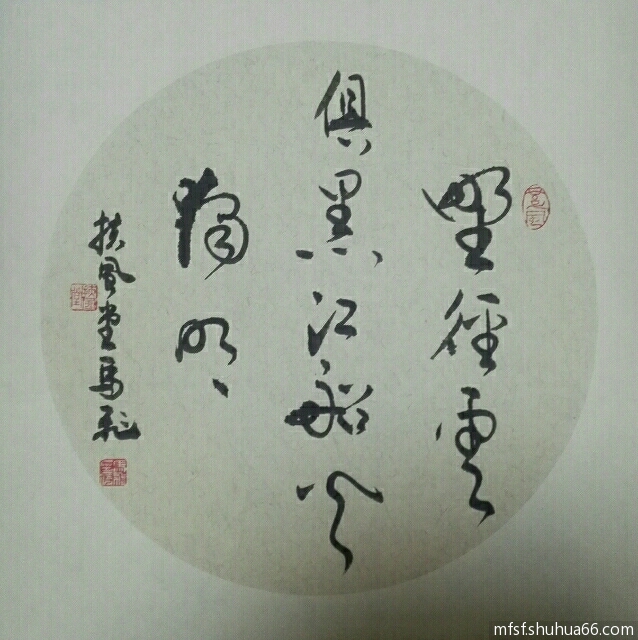 野徑雲
俱黑江船火
獨明
扶風堂馬
mfsfshuhua66.com